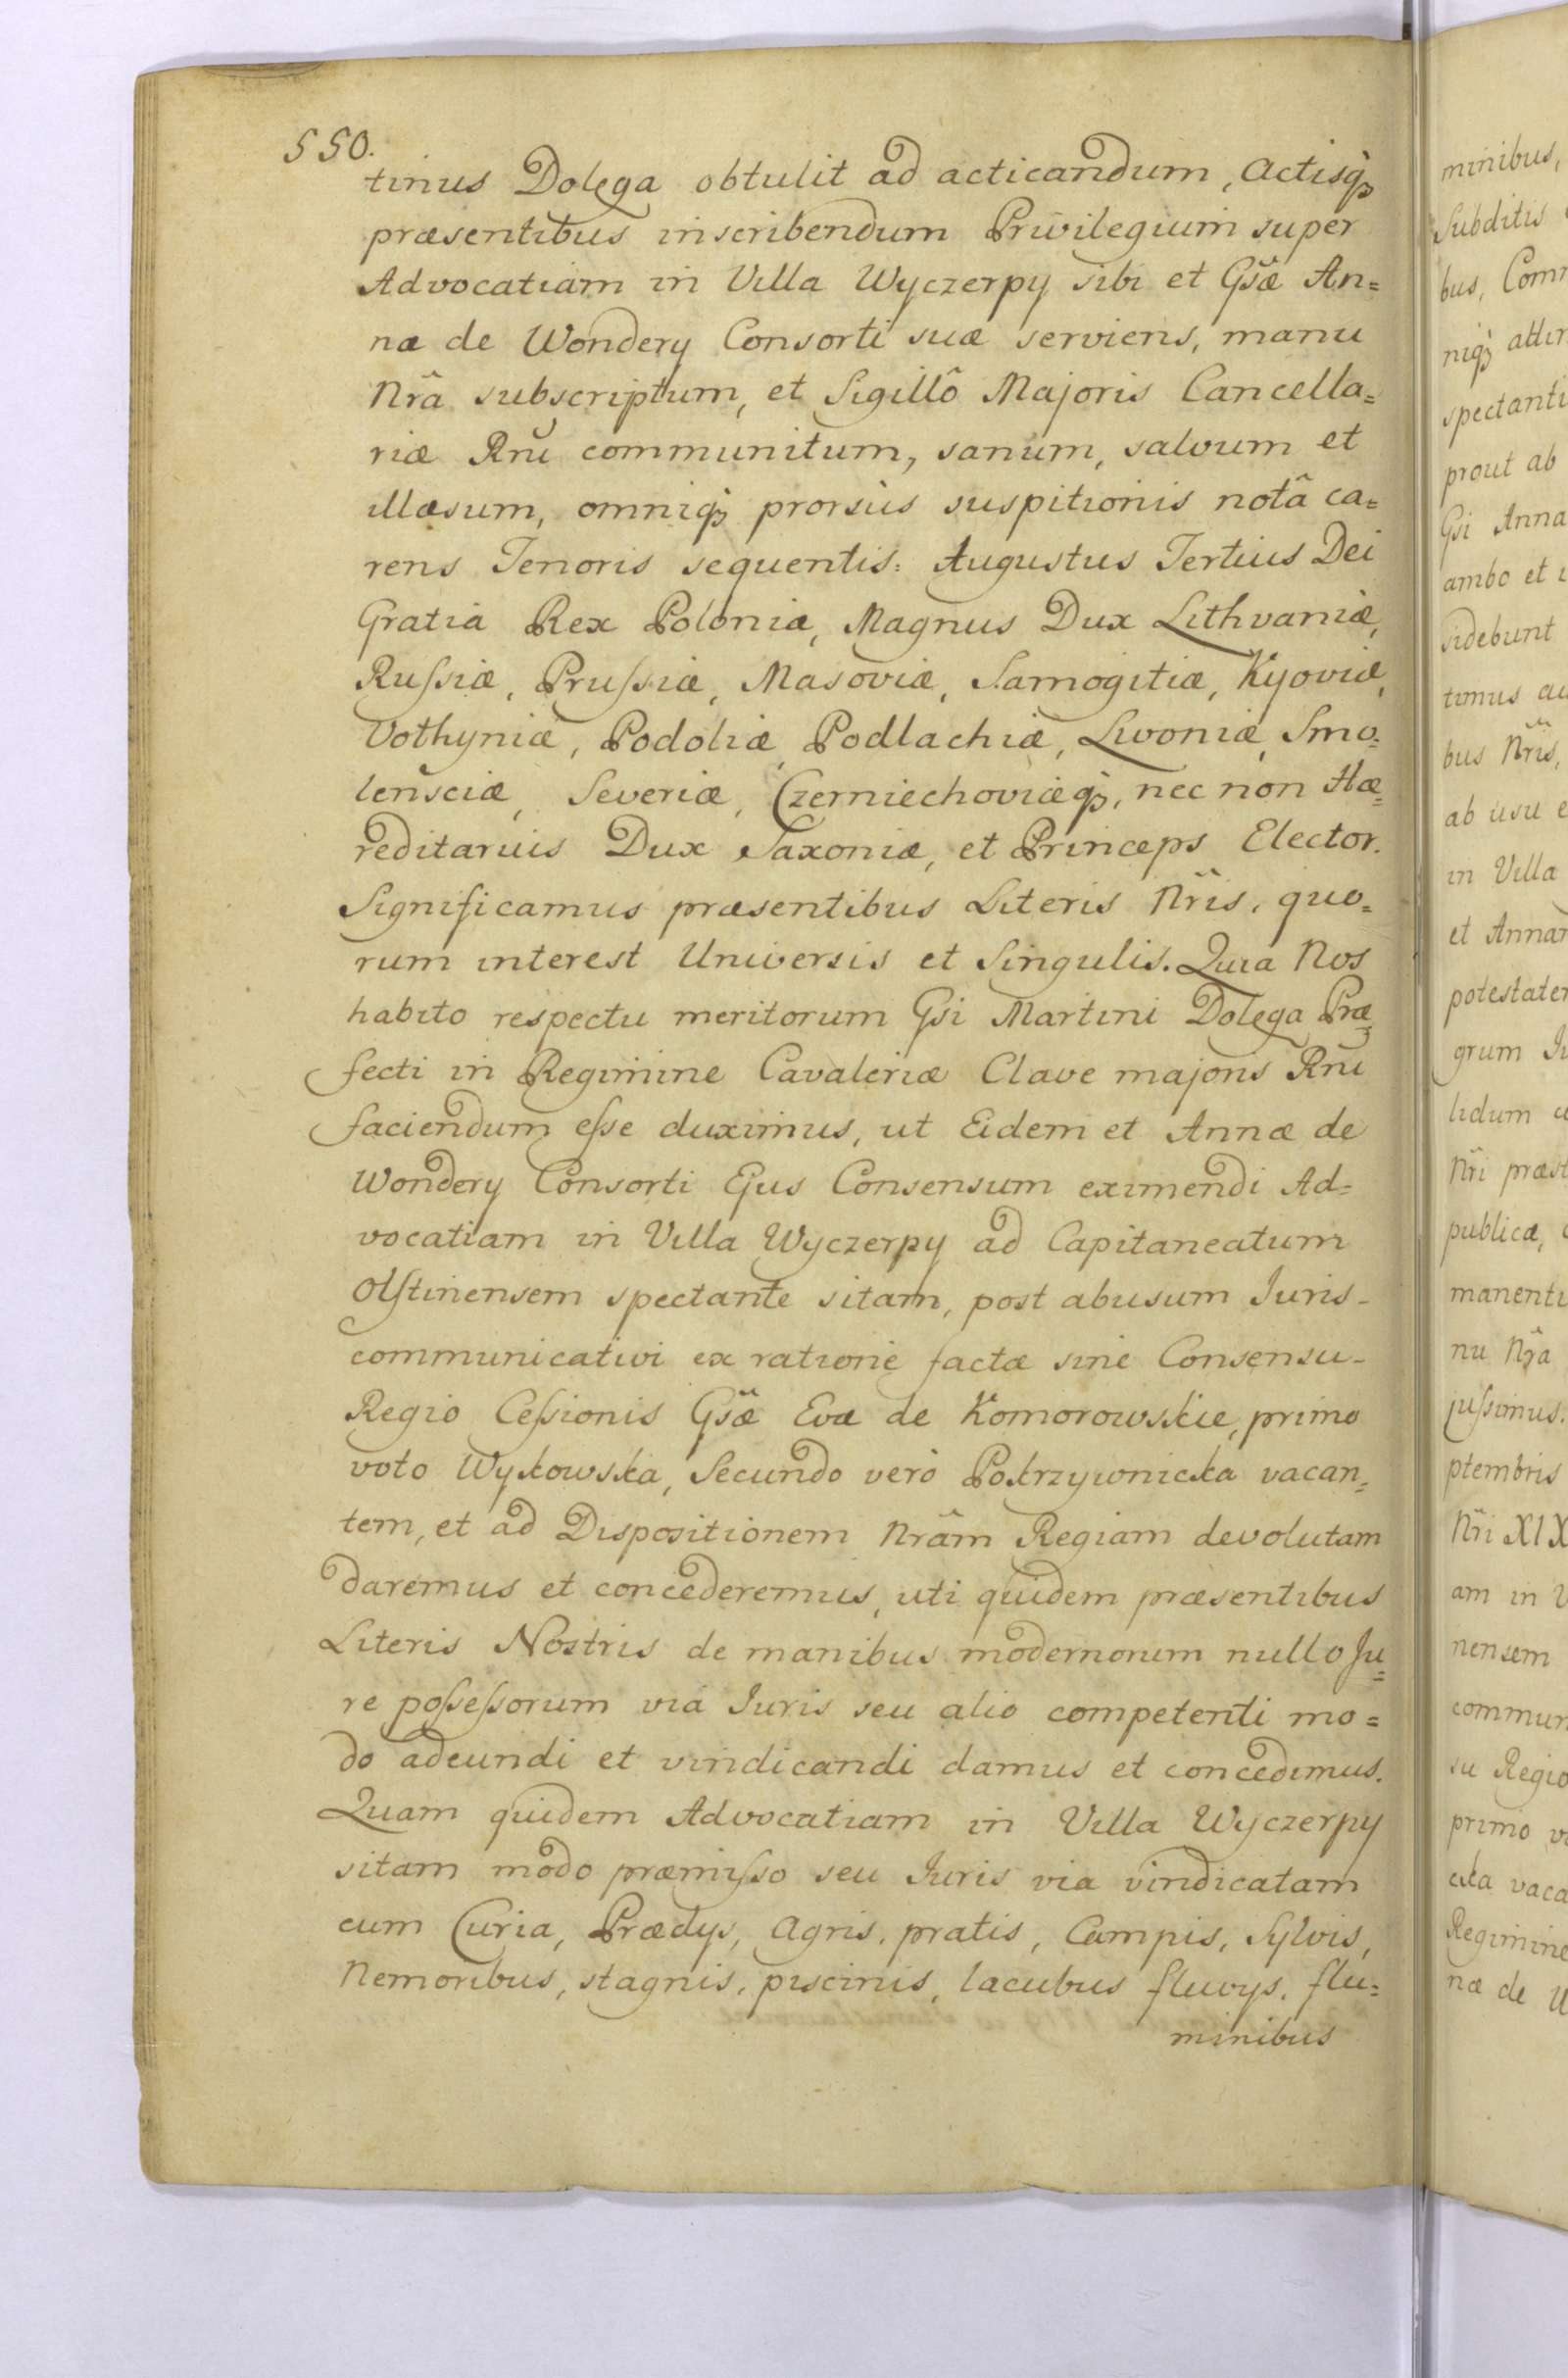 550.
tinus Dolega obtulit ad acticandum, actisq̃
præsentibus inscribendum Privilegium super
Advocatiam in Villa Wyczerpy sibi et Gsæ̃ An=
næ de Wondery Consorti suæ serviens, manu
Nrã subscriptum, et Sigillô Majoris Cancella=
riæ Rnĩ communitum, sanum, salvum et
illæsum, omniq̃ prorsùs suspitionis notâ ca=
rens Tenoris sequentis: Augustus Tertius Dei
Gratia Rex Poloniæ, Magnus Dux Lithvaniæ,
Rußiæ, Prußiæ, Masoviæ, Samogitiæ, Kyoviæ,
Vothyniæ, Podoliæ, Podlachiæ, Livoniæ, Smo=
lensciæ, Severiæ, Czerniechoviæq̃, nec non Hæ=
reditarius Dux Saxoniæ, et Princeps Elector.
Significamus præsentibus Literis Nrĩs, quo=
rum interest Universis et Singulis. Quia Nos
habito respectu meritorum Gsi Martini Dolega Præ=
fecti in Regimine Cavaleriæ Clavæ majoris Rnĩ
faciendum eße duximus, ut Eidem et Annæ de
Wondery Consorti Ejus Consensum eximendi Ad=
vocatiam in Villa Wyczerpy ad Capitaneatum
Olstinensem spectante sitam, post abusum Juris-
communicativi ex ratione factæ sine Consensu-
Regio Ceßionis Gsæ̃ Evæ de Komorowskie, primo
voto Wykowska, Secundo verò Pokrzywnicka vacan=
tem, et ad Dispositionem Nrãm Regiam devolutam
daremus et concederemus, uti quidem præsentibus
Literis Nostris de manibus modernorum nullo Ju=
re poßeßorum viâ Juris seu alio competenti mo=
do adeundi et vindicandi damus et concedimus.
Quam quidem Advocatiam in Villa Wyczerpy
sitam modo præmißo seu Juris via vindicatam
cum Curia, Prædys, Agris, pratis, Campis, Sylvis,
Nemoribus, stagnis, piscinis, lacubus fluvys, flu=
minibus
minibus,
Subditis
bus,
niq̃
spectanti
prout ab
Gsi Anna
ambo et
sidebunt
timus
bus Nrĩs,
ab usu
in Villa
et Annam
potestatem
grum
lidum
Nrĩ præst
publicæ,
manenti
nu Nrã
jußimus.
ptembris
Nrĩ XIX
am in
nensem
commun
su Regio
primo
cka vaca
Regimine
næ de